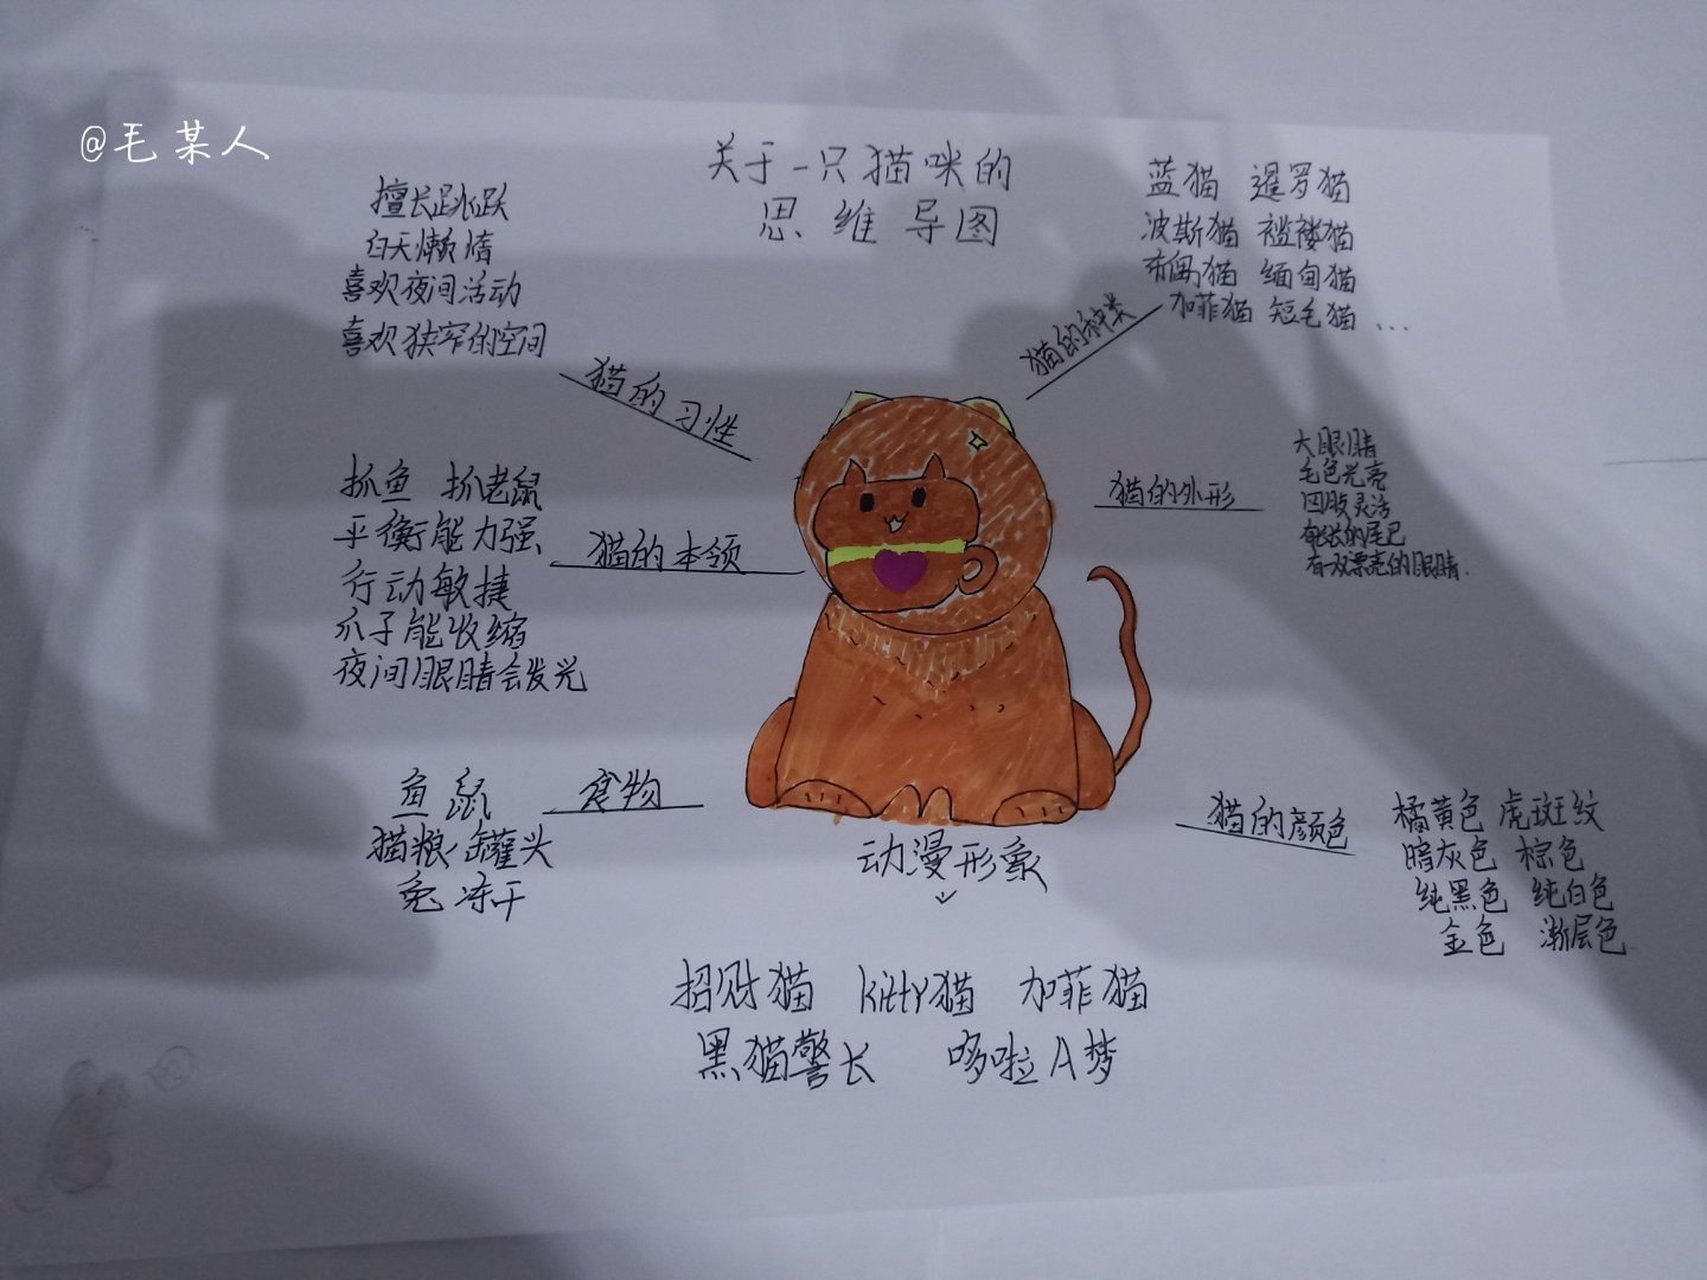 @毛某人
关于一只猫咪的
思维导图
擅长跳跃
白天懒惰
喜欢夜间活动
喜欢狭窄的空间
猫的习性
蓝猫 暹罗猫
波斯猫 褴褛猫
布偶猫 缅甸猫
加菲猫 短毛猫 ...
猫的种类
抓鱼 抓老鼠
平衡能力强
行动敏捷
爪子能收缩
夜间眼睛会发光
猫的本领
猫的外形
大眼睛
毛色光亮
四肢灵活
细长的尾巴
有双漂亮的眼睛.
鱼 鼠
猫粮 罐头
兔 冻干
食物
猫的颜色
橘黄色 虎斑纹
暗灰色 棕色
纯黑色 纯白色
金色 渐层色
动漫形象
招财猫 kitty猫 加菲猫
黑猫警长 哆啦A梦